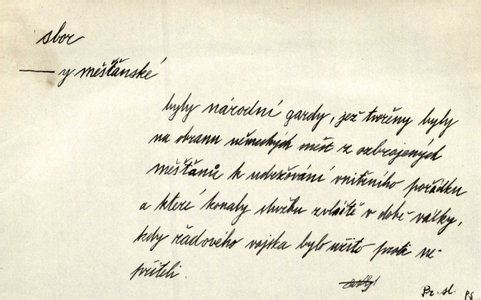 sbor
— y měšťanské
byly národní gardy, jež tvořeny byly
na obranu německých měst z ozbrojených
měšťanů k udržování vnitřního pořádku
a které konaly službu zvláště v době války,
kdy řádového vojska bylo užito proti ne-
příteli.
Pr. sl.